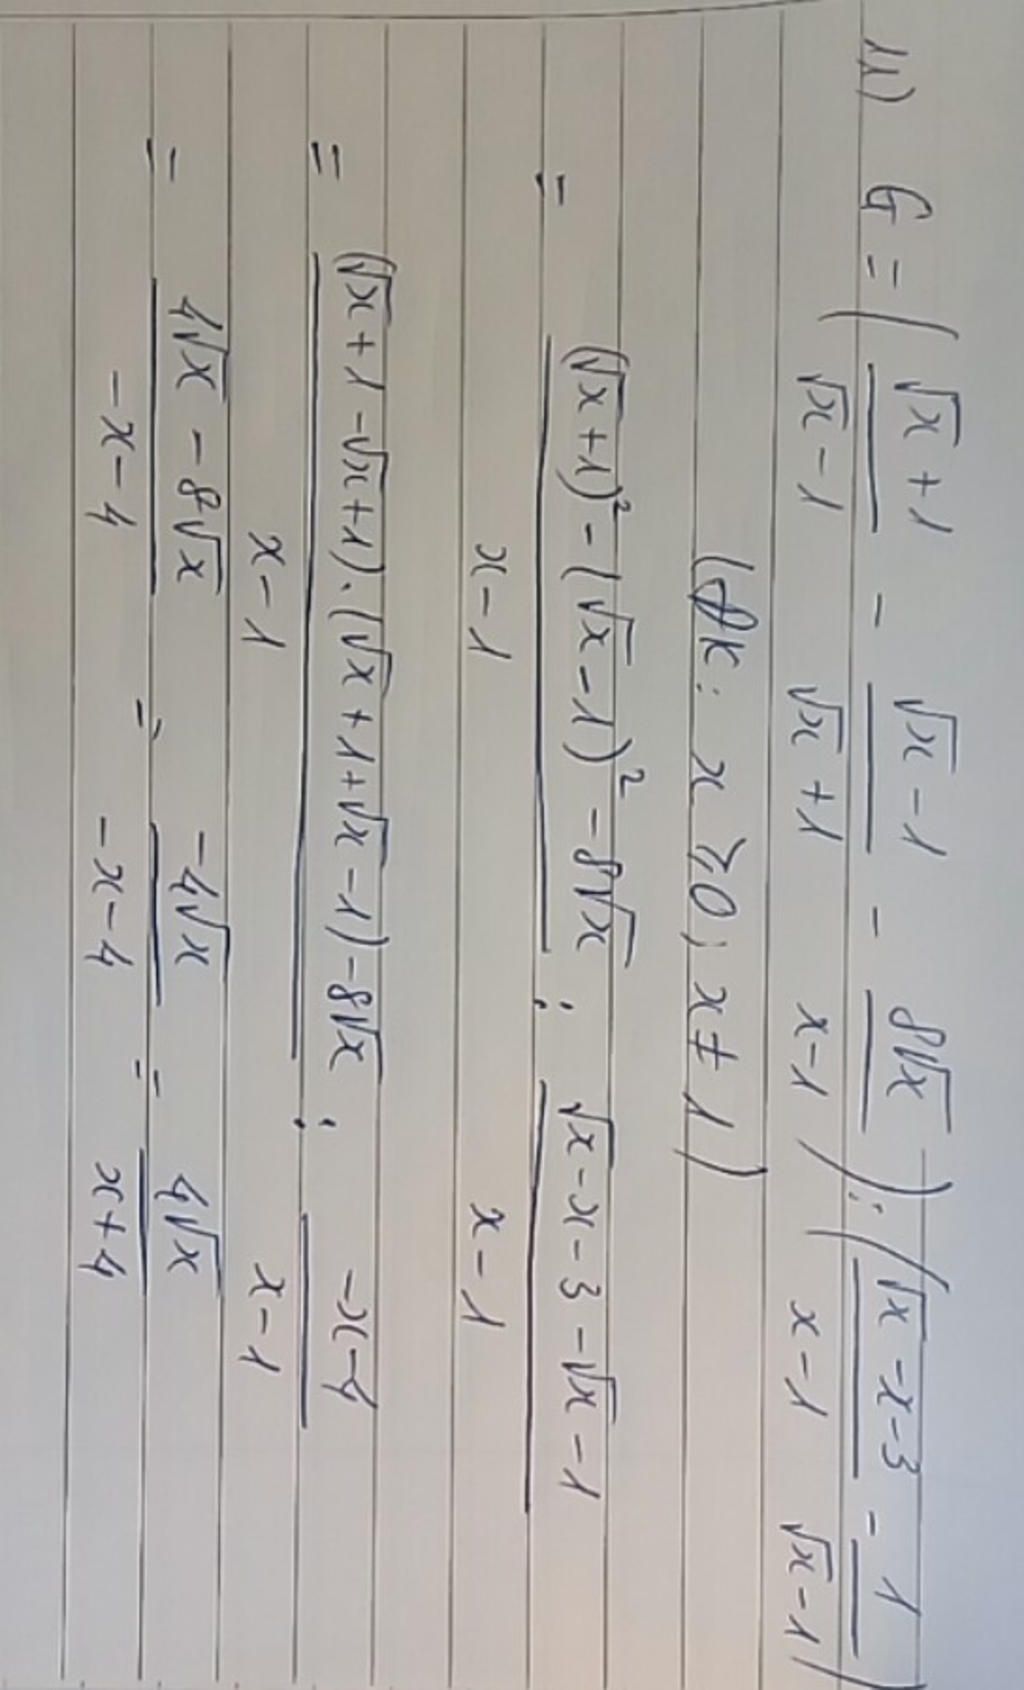 11) G = (\frac{\sqrt{x}+1}{\sqrt{x}-1} - \frac{\sqrt{x}-1}{\sqrt{x}+1} - \frac{8\sqrt{x}}{x-1}) : (\frac{\sqrt{x}-x-3}{x-1} - \frac{1}{\sqrt{x}-1})
(ĐK: x ⩾ 0; x ≠ 1)
= \frac{(\sqrt{x}+1)^2 - (\sqrt{x}-1)^2 - 8\sqrt{x}}{x-1} : \frac{\sqrt{x}-x-3-\sqrt{x}-1}{x-1}
= \frac{(\sqrt{x}+1-\sqrt{x}+1).(\sqrt{x}+1+\sqrt{x}-1)-8\sqrt{x}}{x-1} : \frac{-x-4}{x-1}
= \frac{4\sqrt{x}-8\sqrt{x}}{-x-4} = \frac{-4\sqrt{x}}{-x-4} = \frac{4\sqrt{x}}{x+4}